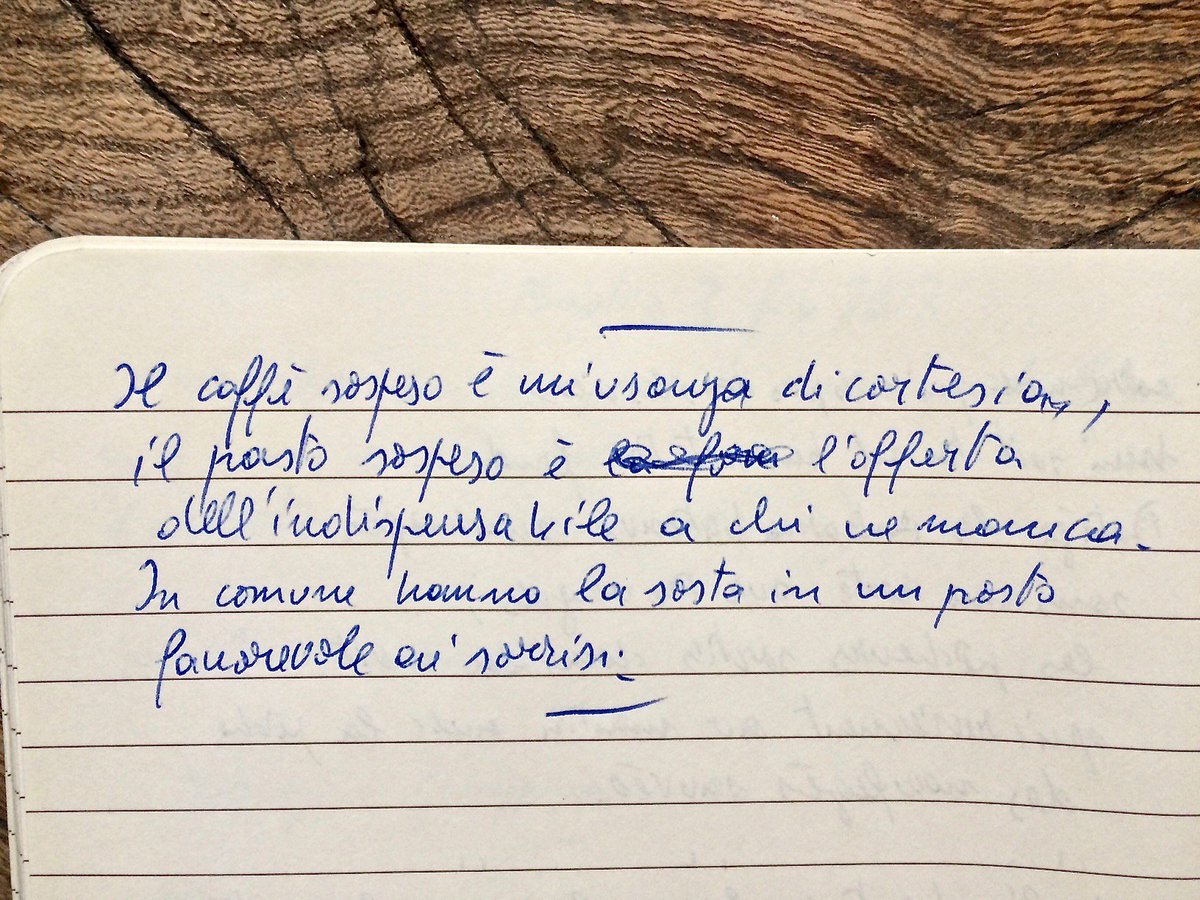 Il caffè sospeso è un'usanza di cortesia,
il pasto sospeso è l'offerta
dell'indispensabile a chi ne manca.
In comune hanno la sosta in un posto
favorevole ai sorrisi.